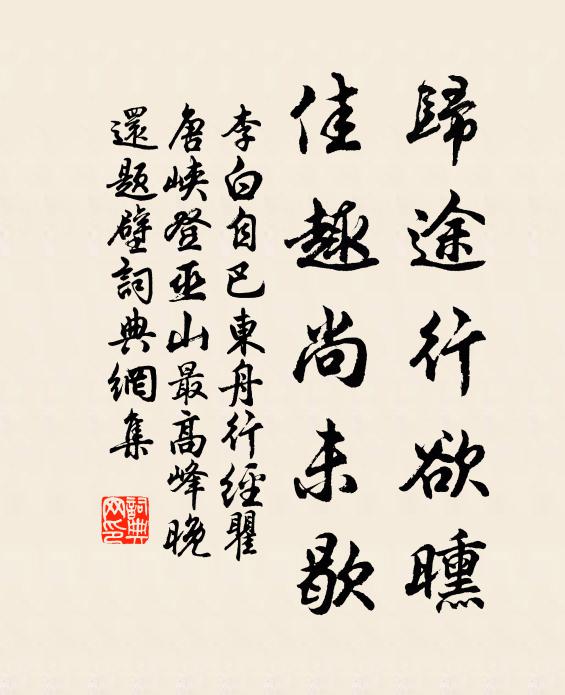 歸途行欲曛
佳趣尚未歇
李白自巴東舟行經瞿
唐峽登巫山最高峰晚
還題壁詞典網集
詞典
网印